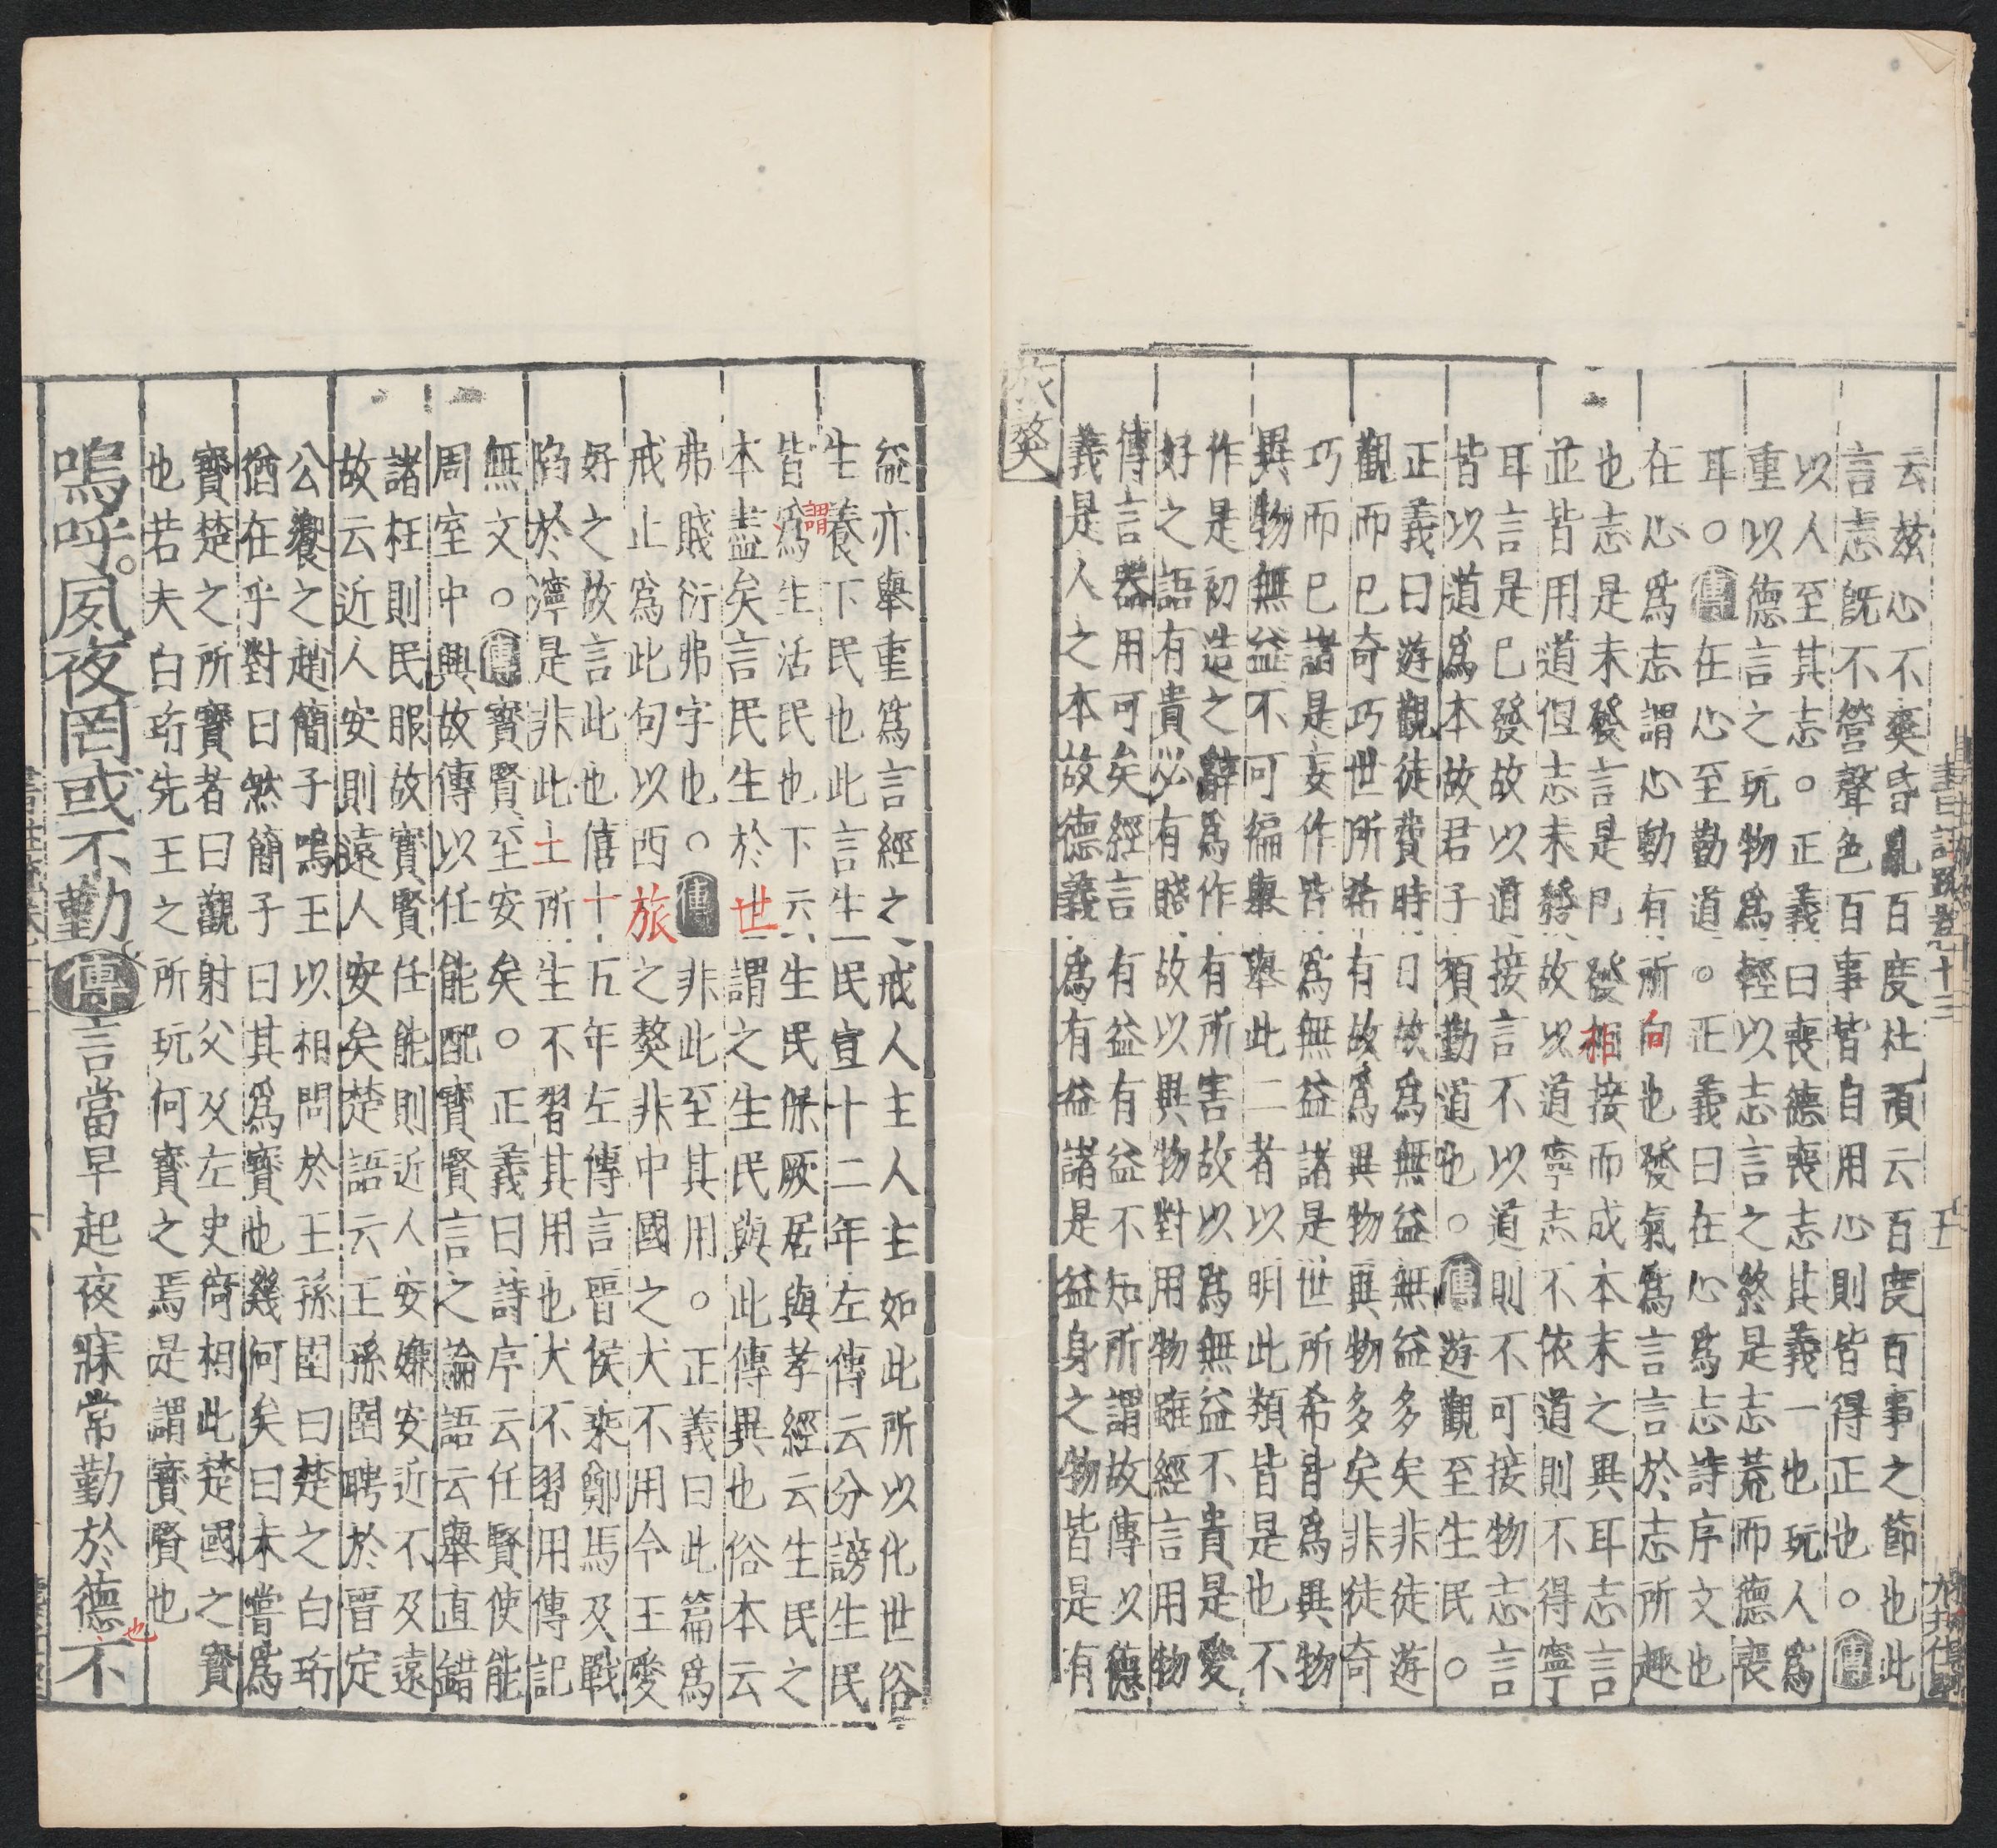 云兹心不爽昏亂百度杜預云百度百事之節也此
言志旣不營聲色百事皆自用心則皆得正也。傳
以人至其志。正義曰喪德喪志其義一也玩人爲
重以德言之玩物爲輕以志言之終是志荒而德喪
耳。傳在心至勤道。正義曰在心爲志詩序文也
在心爲志謂心動有所向也發氣爲言言於志所趣
也志是未發言是已發相接而成本末之異耳志言
並皆用道但志未發故以道寧志不依道則不得寧
耳言是已發故以道接言不以道則不可接物志言
皆以道爲本故君子須勤道也。傳遊觀至生民。
正義曰遊觀徒費時日故爲無益無益多矣非徒遊
觀而已奇巧世所希有故爲異物異物多矣非徒奇
巧而已諸是妄作皆爲無益諸是世所希皆爲異物
異物無益不可徧舉舉此二者以明此類皆是也不
作是初造之辭爲作有所害故以爲無益不貴是愛
好之語有貴必有賤故以異物對用物雖經言用物
傳言器用可矣經言有益有益不知所謂故傳以德
義是人之本故德義爲有益諸是益身之物皆是有
旅獒
益亦舉重爲言經之戒人主人主如此所以化世俗
生養下民也此言生民宣十二年左傳云分謗生民
皆爲生活民也下云生民保厥居與孝經云生民之
謂
本盡矣言民生於世謂之生民與此傳異也俗本云
弗賤衍弗字也。傳非此至其用。正義曰此篇爲
戒止爲此句以西旅之獒非中國之犬不用令王愛
好之故言此也僖十五年左傳言晉侯乘鄭馬及戰
陷於濘是非此土所生不習其用也犬不習用傳記
無文。傳寶賢至安矣。正義曰詩序云任賢使能
周室中興故傳以任能配寶賢言之論語云舉直錯
諸枉則民服故寶賢任能則近人安嫌安近不及遠
故云近人安則遠人安矣楚語云王孫圉聘於晉定
公饗之趙簡子鳴玉以相問於王孫圉曰楚之白珩
猶在乎對曰然簡子曰其爲寶也幾何矣曰未嘗爲
寶楚之所寶者曰觀射父及左史倚相此楚國之寶
也若夫白珩先王之所玩何寶之焉是謂寶賢也
嗚呼。夙夜罔或不勤傳言當早起夜寐常勤於德也不